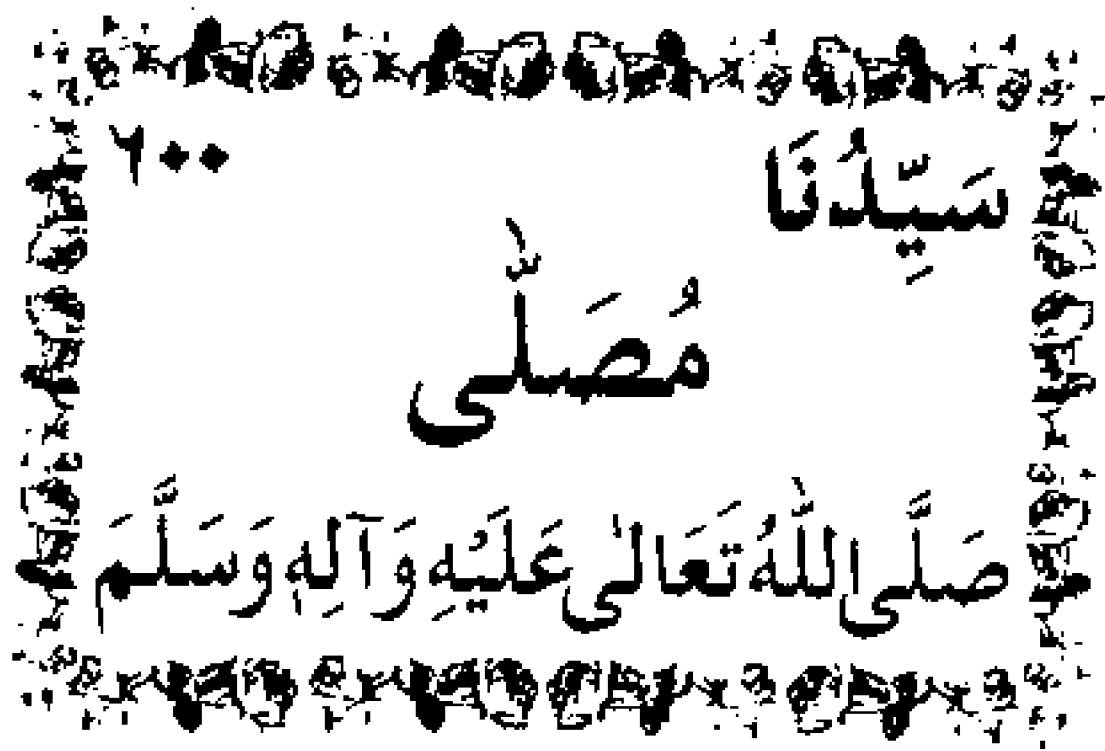 سَيِّدُنَا ٦٠٠
مُصَلّٰى
صَلَّى اللّٰهُ تَعَالٰى عَلَيْهِ وَآلِهٖ وَسَلَّمَ